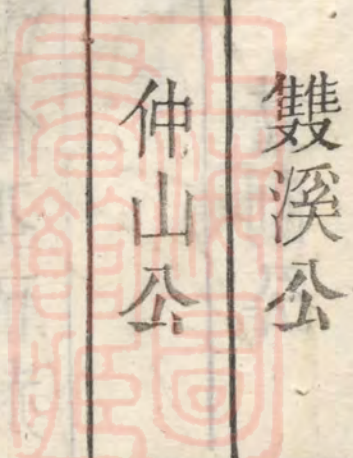 雙溪公
仲山公